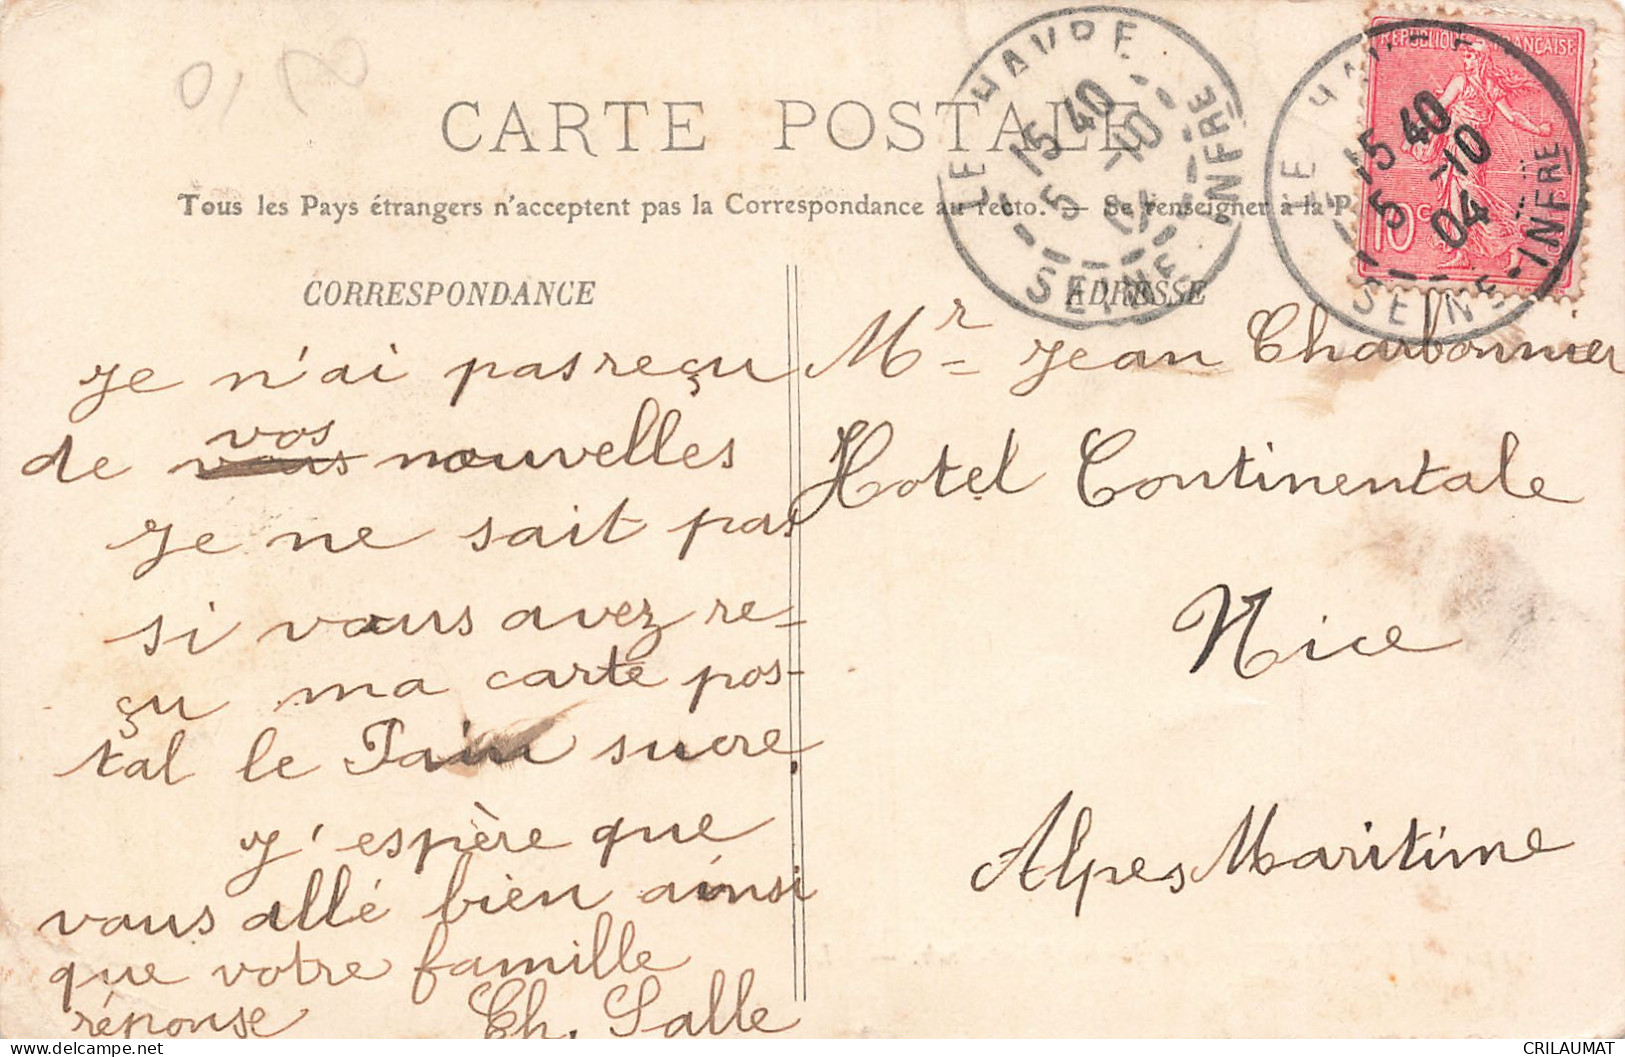 CARTE POSTALE
Tous les Pays étrangers n'acceptent pas la Correspondance au recto. — Se renseigner à la P
CORRESPONDANCE
Je n'ai pas reçu
de vos nouvelles
Je ne sait pas
si vous avez re-
çu ma carte pos-
tal le Pain sucre.
J'espère que
vous allé bien ainsi
que votre famille
réponse Ch. Salle
ADRESSE
Mr Jean Charbonnier
Hotel Continentale
Nice
Alpes Maritime
LE HAVRE
15 40
5 -10
SEINE INFRE
LE HAVRE
15 40
5 -10
04
SEINE INFRE
REPUBLIQUE FRANÇAISE
10 c
CRILAUMAT